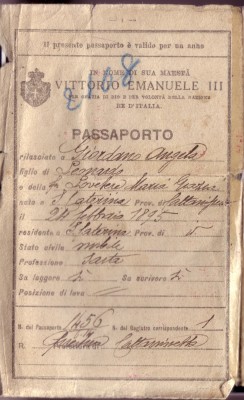 Il presente passaporto è valido per un anno
IN NOME DI SUA MAESTÀ
VITTORIO EMANUELE III
PER GRAZIA DI DIO E PER VOLONTÀ DELLA NAZIONE
RE D'ITALIA.
PASSAPORTO
rilasciato a Giordano Angela
figlio di Leonardo
e della fu Lovetere Maria
nato a S. Caterina Prov. di Caltanissetta
il 24 1895
residente a S. Caterina Prov. di
Stato civile nubile
Professione sarta
Sa leggere sì Sa scrivere sì
Posizione di leva
N. del Passaporto 1456 N. del Registro corrispondente 1
R. Questura Caltanissetta